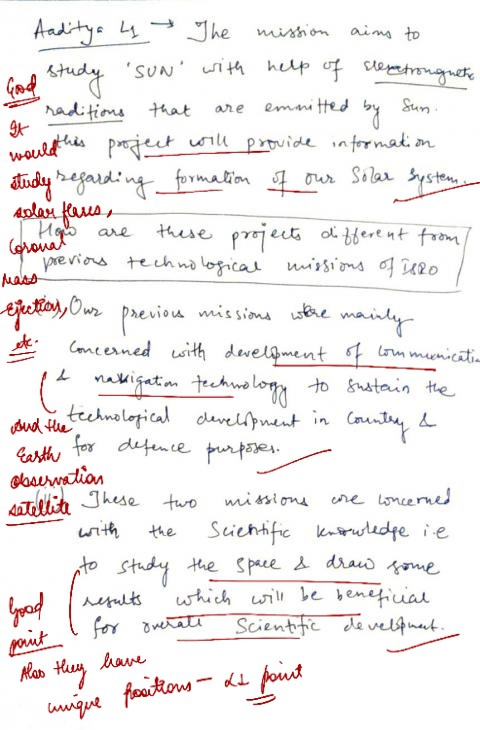 Aaditya L1 → The mission aims to
study 'SUN' with help of electrongnetic
raditions that are emmitted by Sun.
this project will provide information
regarding formation of our Solar System.
Good
It
would
study
solar flares,
Coronal
Mass
Ejection,
etc.
How are these projects different from
previous technological missions of ISRO
Our previous missions were mainly
concerned with development of communication
& navigation technology to sustain the
technological development in Country &
for defence purposes.
And the
Earth
observation
satellite
(ii) These two missions are concerned
with the Scientific knowledge i.e
to study the space & draw some
results which will be beneficial
for overall Scientific development.
Good
point
Also they have
unique positions - L1 point